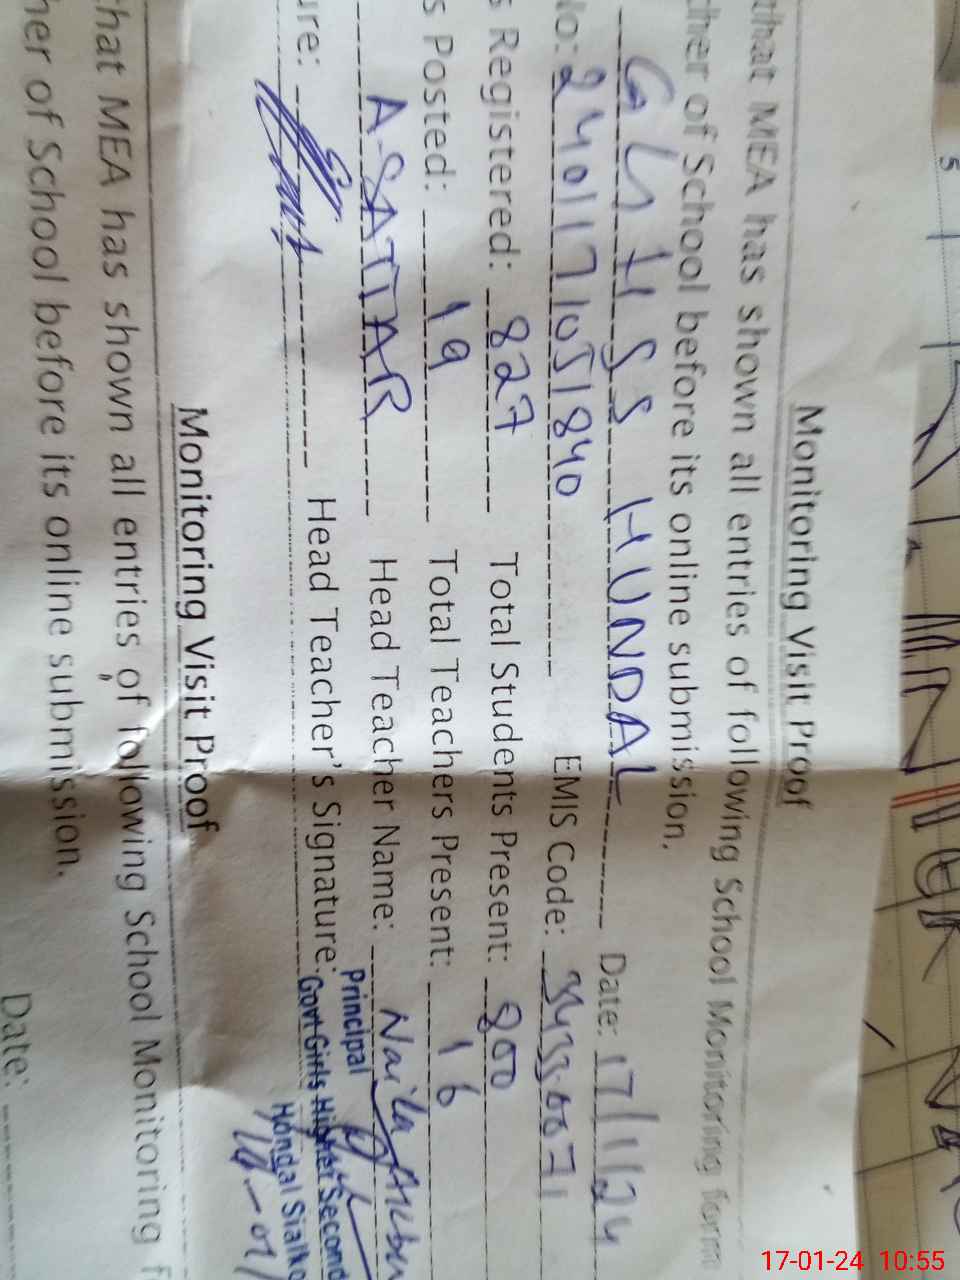 5
Monitoring Visit Proof
that MEA has shown all entries of following School Monitoring form
cher of School before its online submission.
GGHSS HUNDAL Date: 17/1/24
No: 2401171051840 EMIS Code:
s Registered: 827 Total Students Present: 800
s Posted: 19 Total Teachers Present: 16
A-SATTAR Head Teacher Name: Naila
ure: Head Teacher's Signature:
Principal
Govt Girls Higher Second
Hondal Sialko
Monitoring Visit Proof
that MEA has shown all entries of following School Monitoring f
her of School before its online submission.
Date:
17-01-24 10:55